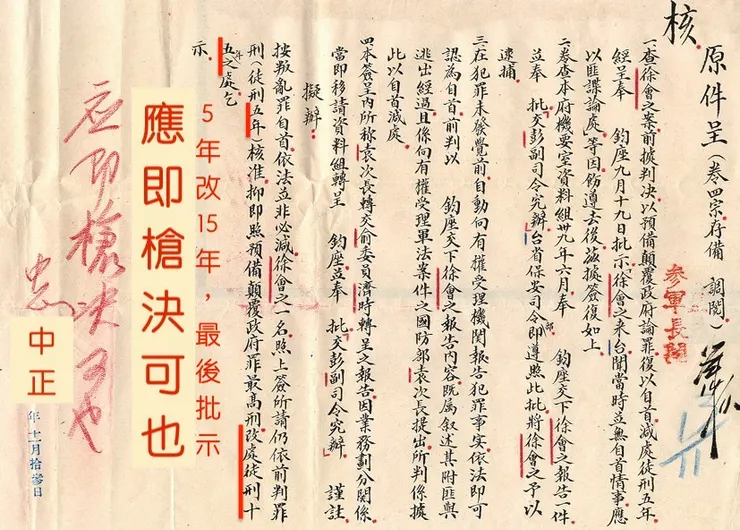 核
原件呈(卷四宗存備 調閱)
參軍長閱
一查徐會之案前據判決以預備顛覆政府論罪復以自首減處徒刑五年
經呈奉 鈞座九月十九日批示「徐會之來台開當時並無自首情事應
以匪諜論處」等因飭遵去後茲據簽復如上
二卷查本府機要室資料組卅九年六月奉 鈞座交下徐會之報告一件
並奉 批交彭副司令究辦台省保安司令部即遵照此批將徐會之予以
逮捕
三在犯罪未發覺前自動向有權受理機關報告犯罪事实依法即可
認為自首前判以 鈞座交下徐會之報告內容既屬叙述其附匪與
逃出經過且係向有權受理軍法案件之國防部袁次長提出所判係據
此以自首減處
四本簽呈內所称袁次長轉交俞委員濟時轉呈之報告因業務劃分關係
當即移請資料組轉呈 鈞座並奉 批交彭副司令究辦 謹註
擬辦
按叛亂罪自首依法並非必減徐會之一名照上簽所請仍依前判罪
刑(徒刑五年)核准抑即照預備顛覆政府罪最高刑改處徒刑十
五年之處乞
示.
5年改15年,最後批示
應即槍決可也
应即槍决可也
中正
年十一月拾參日